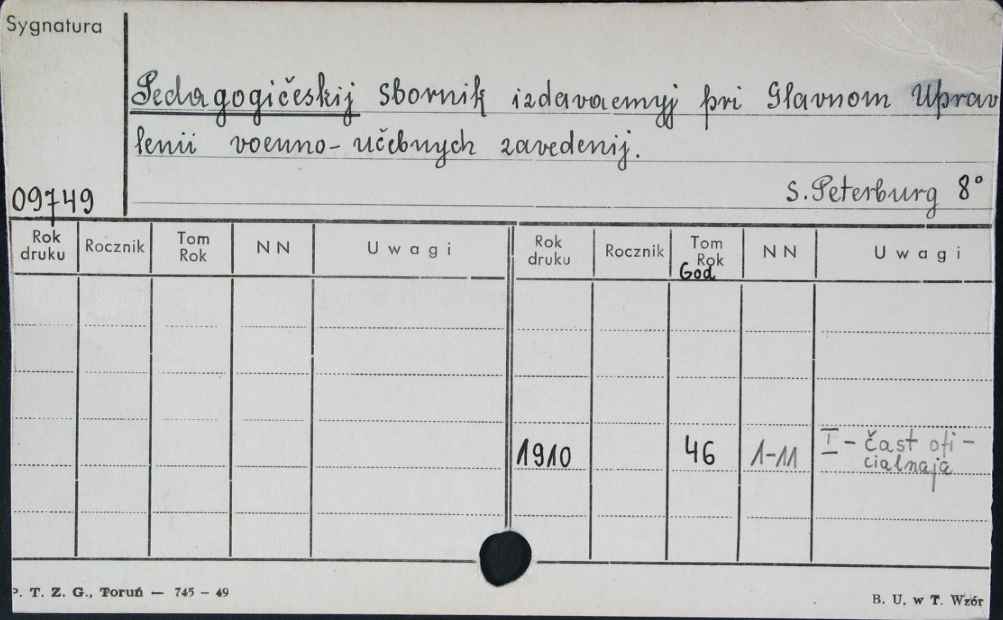 Sygnatura
Pedagogičeskij sbornik izdavaemyj pri Glavnom Uprav
lenii voenno-učebnych zavedenij.
S. Peterburg 8°
09749
Rok druku Rocznik Tom Rok N N Uwagi Rok druku Rocznik Tom Rok God N N Uwagi
1910 46 1-11 I - čast ofi-
cialnaja
P. T. Z. G., Toruń — 745 – 49
B. U. w T. Wzór